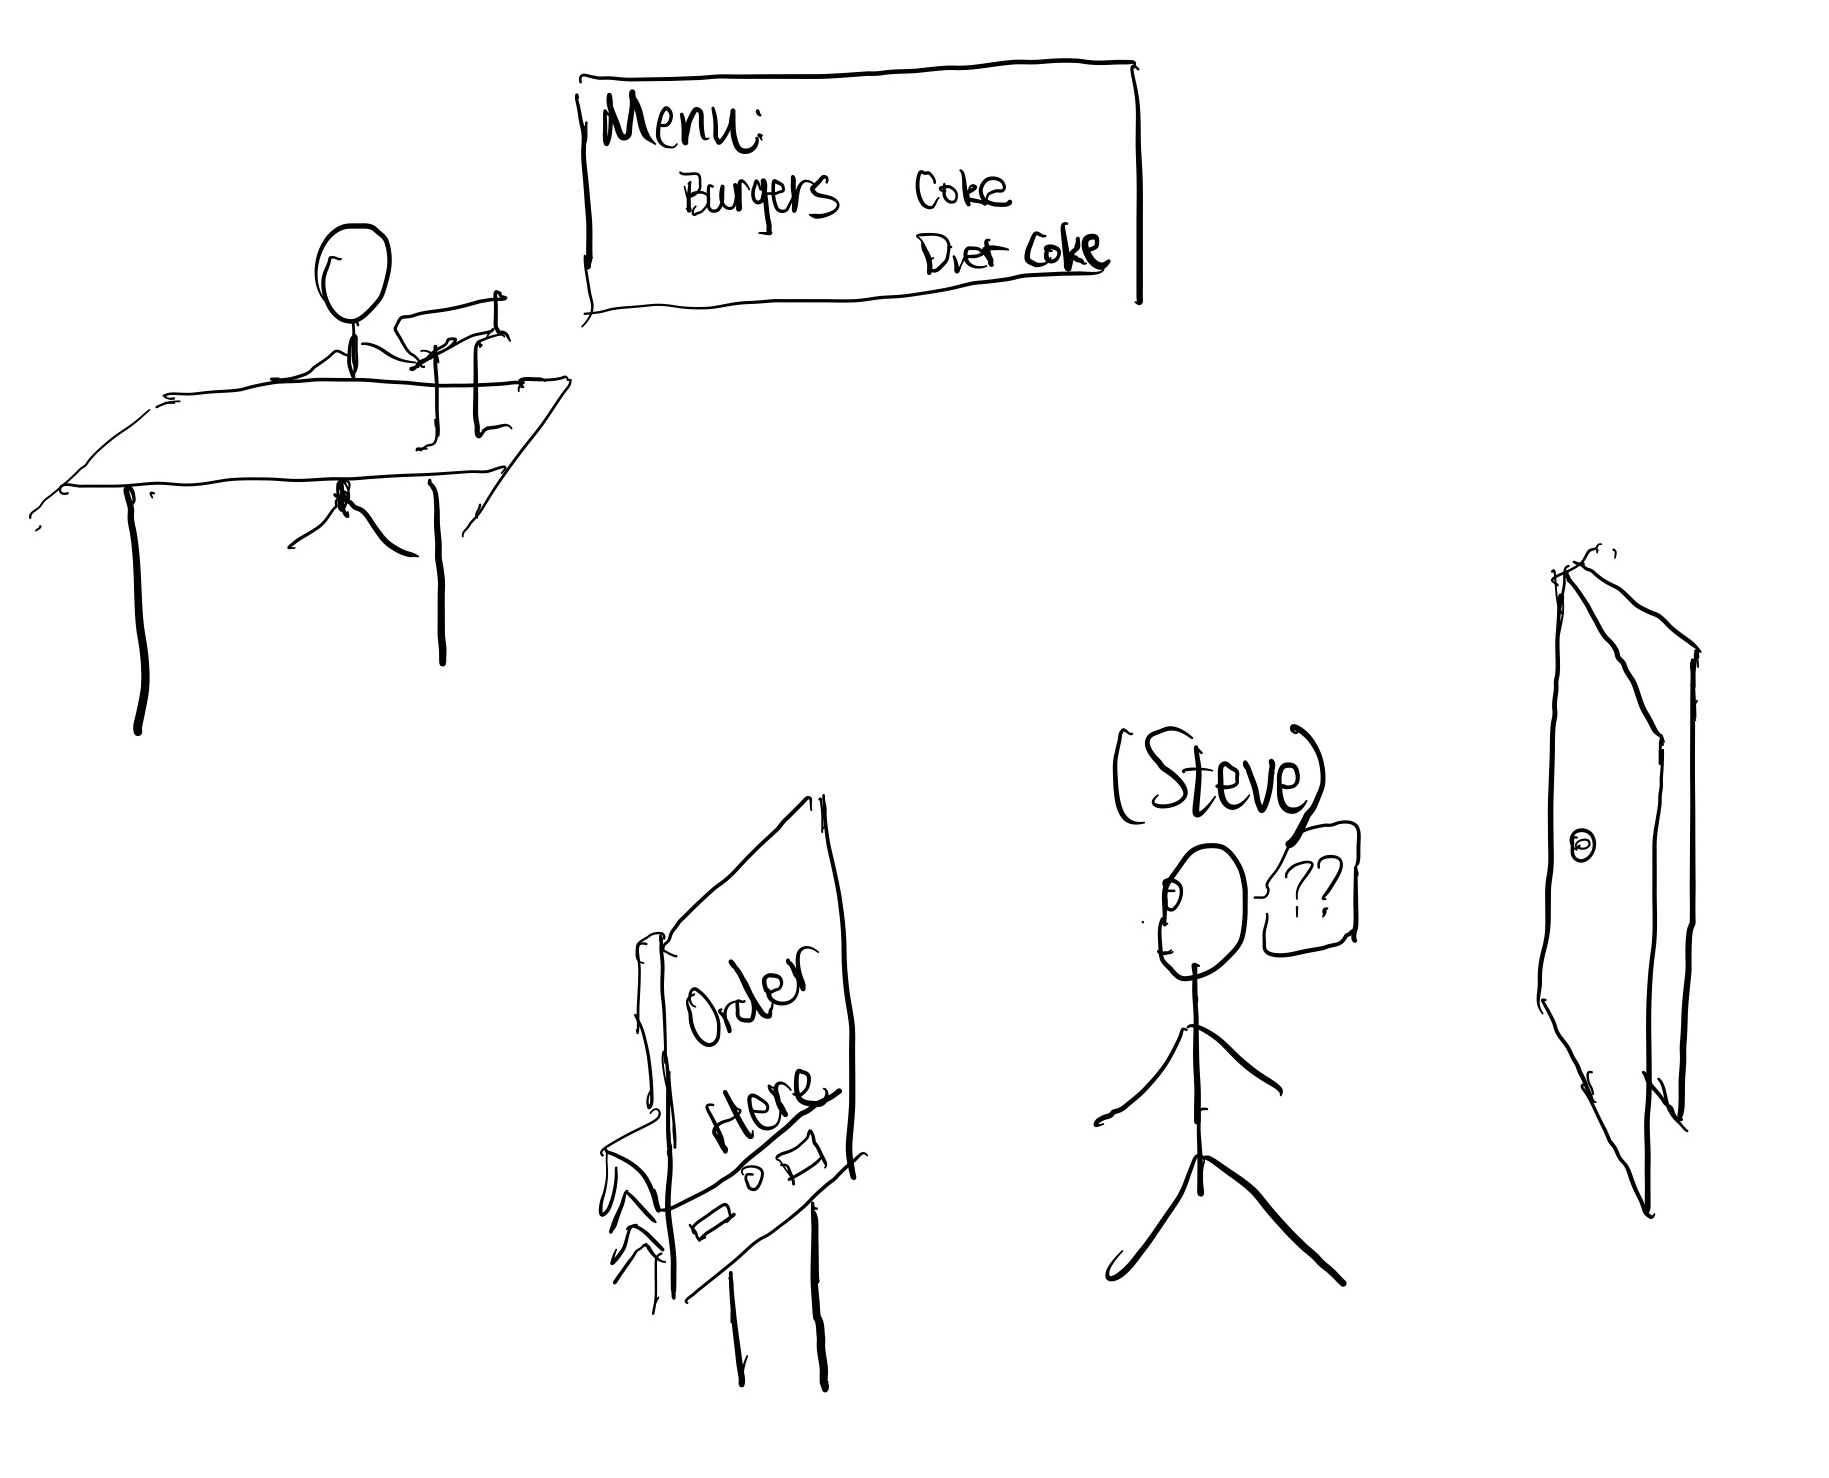 Menu:
Burgers Coke
Diet Coke
(Steve)
??
Order
Here